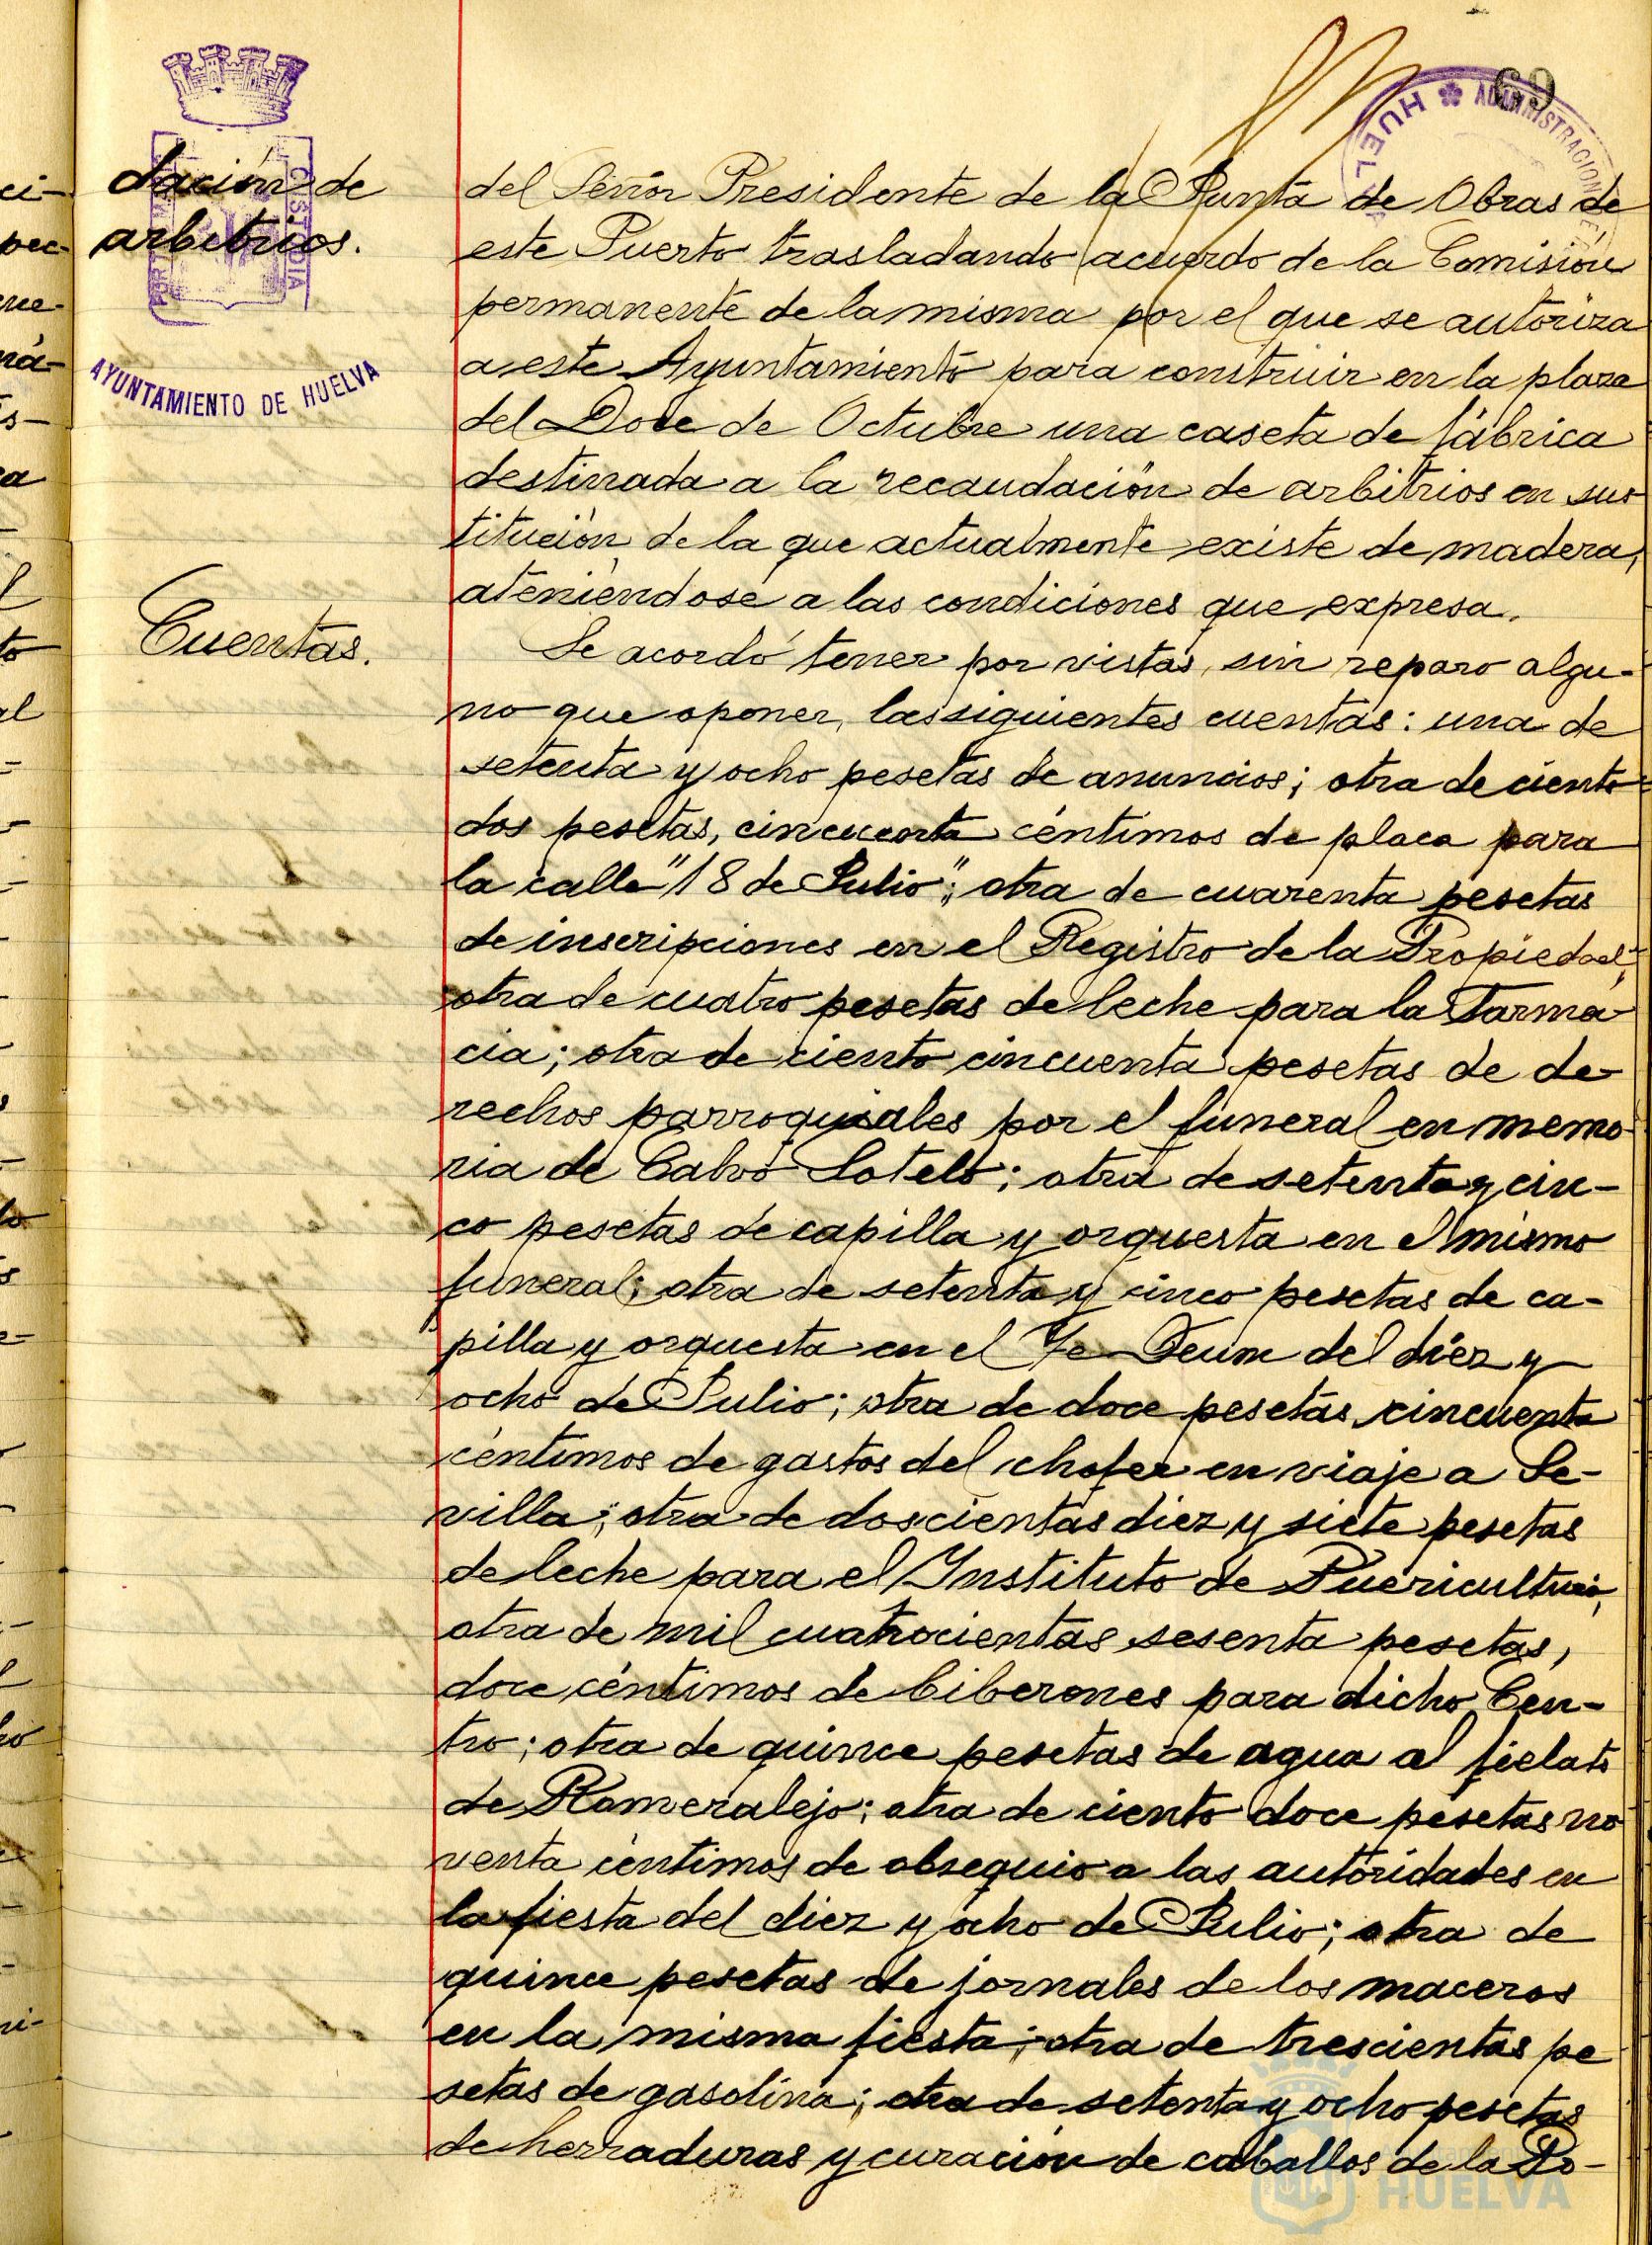 69
HUELVA ADMINISTRACION DE
PORT MA CUSTODIA
AYUNTAMIENTO DE HUELVA
dación de
arbitrios.
del Señor Presidente de la Junta de Obras de
este Puerto trasladando acuerdo de la Comisión
permanente de la misma por el que se autoriza
a este Ayuntamiento para construir en la plaza
del Doce de Octubre una caseta de fábrica
destinada a la recaudación de arbitrios en sus
titución de la que actualmente existe de madera,
ateniéndose a las condiciones que expresa.
Cuentas.
Se acordó tener por vistas, sin reparo algu-
no que oponer, las siguientes cuentas: una de
setenta y ocho pesetas de anuncios; otra de ciento
dos pesetas, cincuenta céntimos de placa para
la calle "18 de Julio"; otra de cuarenta pesetas
de inscripciones en el Registro de la Propiedad;
otra de cuatro pesetas de leche para la Farma-
cia; otra de ciento cincuenta pesetas de de-
rechos parroquiales por el funeral en memo-
ria de Calvo Sotelo; otra de setenta y cin-
co pesetas de capilla y orquesta en el mismo
funeral; otra de setenta y cinco pesetas de ca-
pilla y orquesta en el Te-Deum del diez y
ocho de Julio; otra de doce pesetas, cincuenta
céntimos de gastos del chofer en viaje a Se-
villa; otra de doscientas diez y siete pesetas
de leche para el Instituto de Puericultura;
otra de mil cuatrocientas sesenta pesetas,
doce céntimos de biberones para dicho Cen-
tro; otra de quince pesetas de agua al fielato
de Romeralejo; otra de ciento doce pesetas no
venta céntimos de obsequio a las autoridades en
la fiesta del diez y ocho de Julio; otra de
quince pesetas de jornales de los maceros
en la misma fiesta; otra de trescientas pe
setas de gasolina; otra de setenta y ocho pesetas
de herraduras y curación de caballos de la Po-
HUELVA